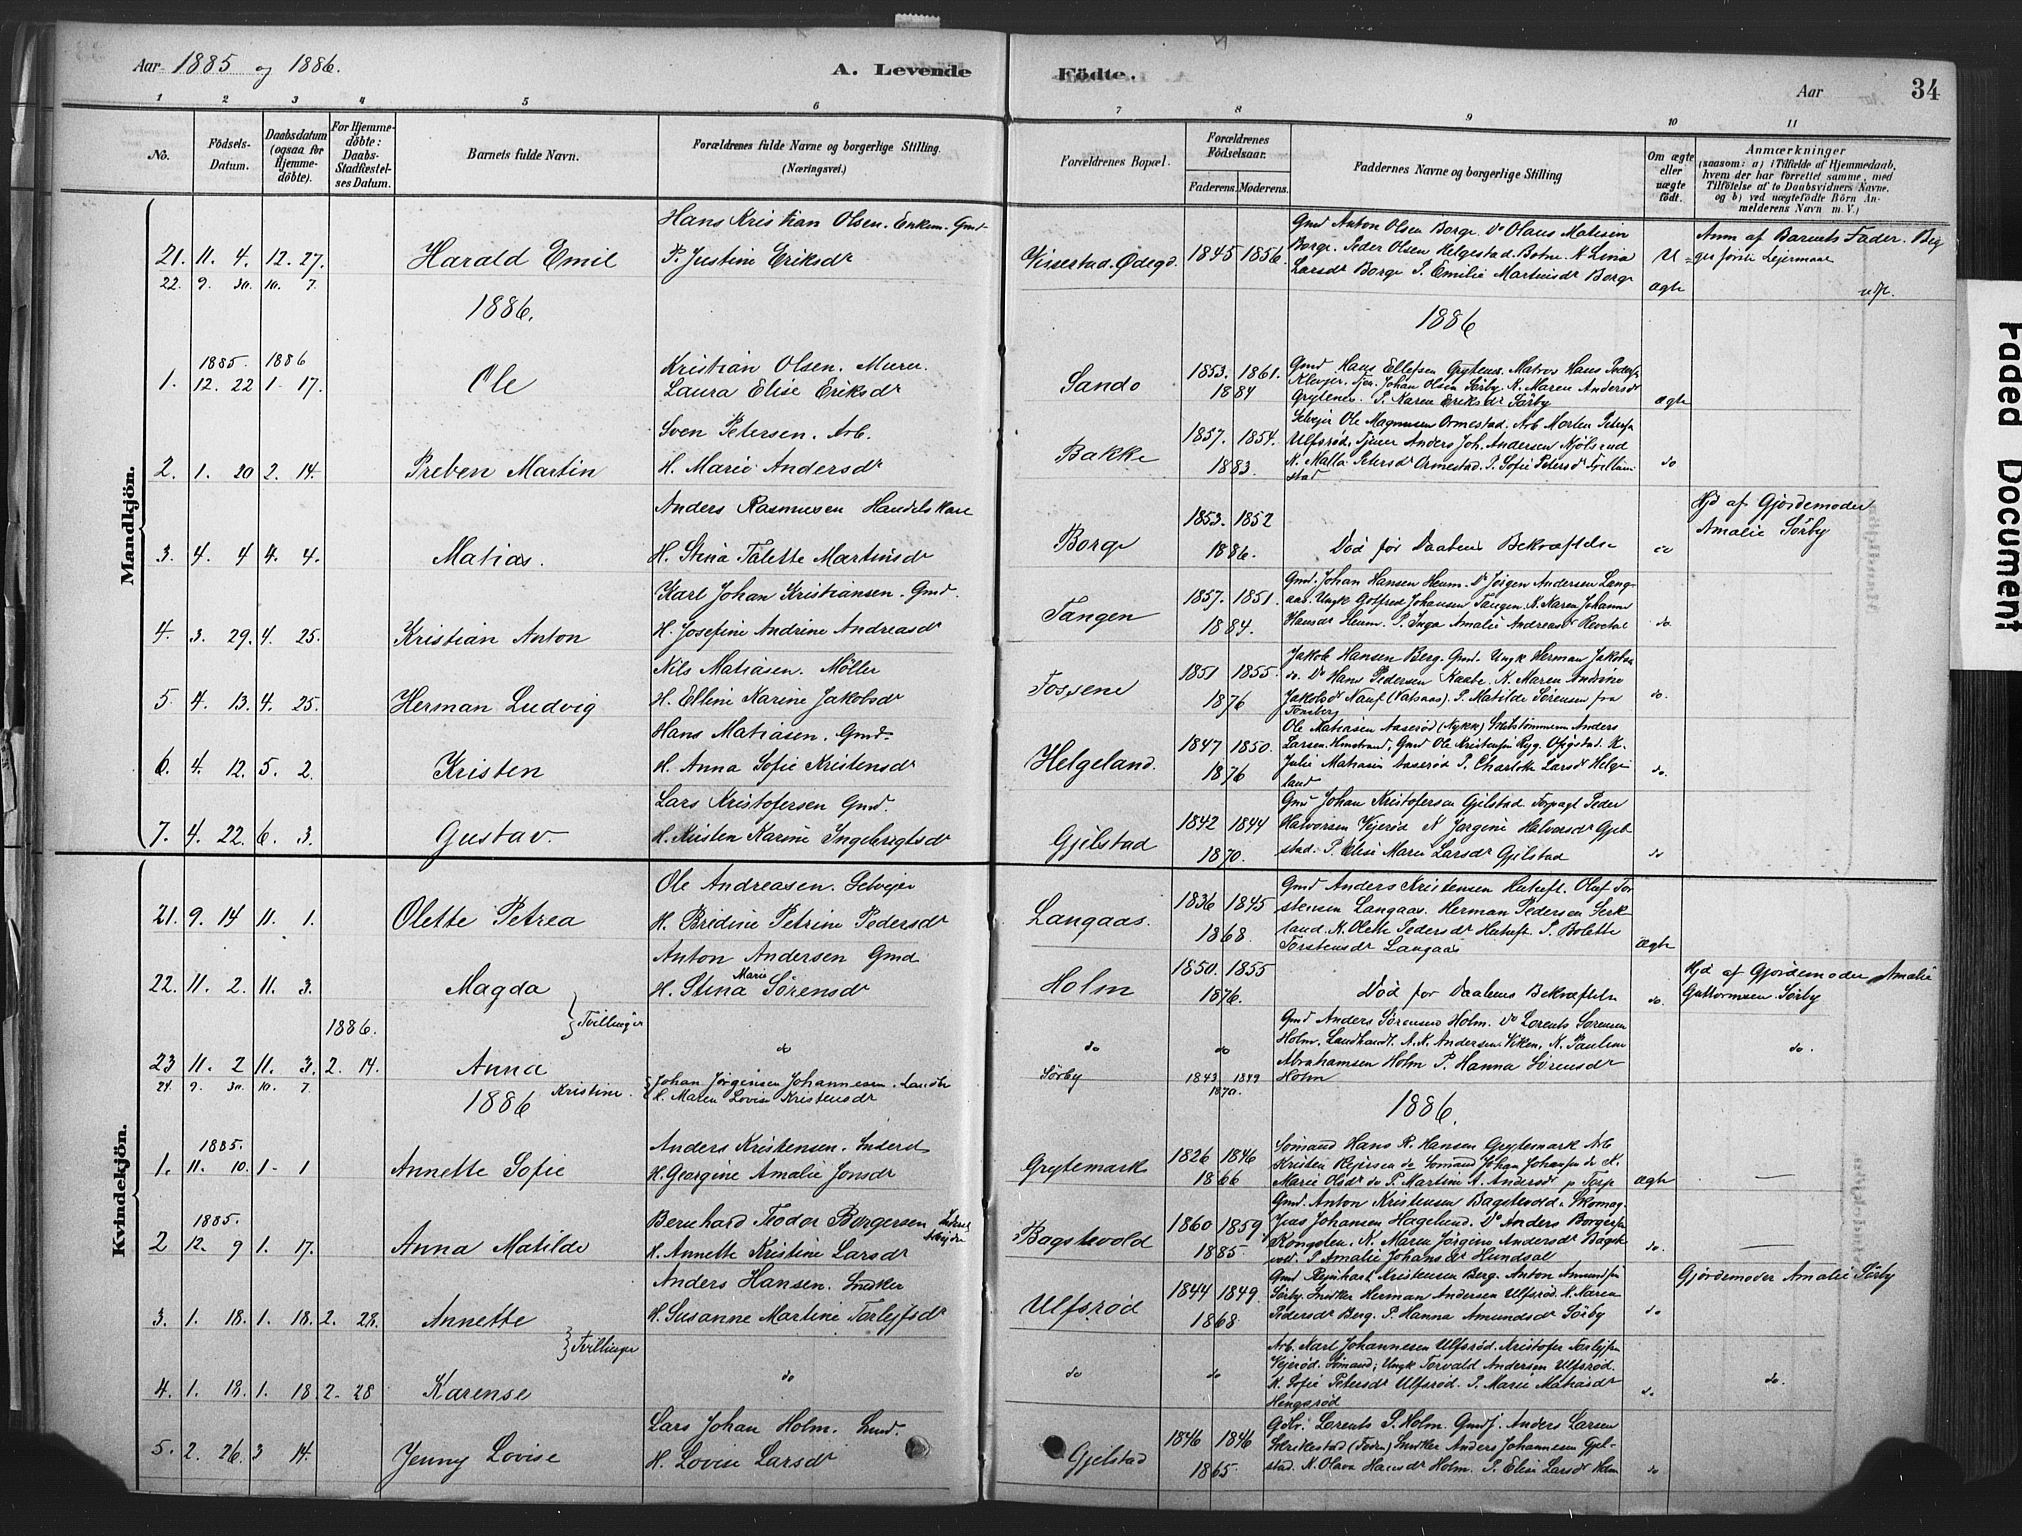 Aar 1885 og 1886.
A. Levende Födte.
Aar
34
1 2 3 4 5 6 7 8 9 10 11
No.
Födsels-Datum.
Daabsdatum (ogsaa for Hjemme-döbte).
For Hjemme-döbte: Daabs-Stadfæstelses Datum.
Barnets fulde Navn.
Forældrenes fulde Navne og borgerlige Stilling. (Næringsvei.)
Forældrenes Bopæl.
Forældrenes Födselsaar.
Faderens. Moderens.
Faddernes Navne og borgerlige Stilling
Om ægte eller uægte født.
Anmærkninger
(saasom: a) i Tilfælde af Hjemmedaab, hvem der har forrettet samme, med Tilföielse af to Daabsvidners Navne. og b) ved uægtefödte Börn Anmelderens Navn m. V.)
Mandkjön.
Hans Kristian Olsen. Enkem. Gmd
21. 11. 4. 12. 27. Harald Emil P. Justine Eriksdr
Visserstad. Ødegd. 1845 1856.
Gmd Anton Olsen Borge. Do Olaus Matisen
Borge. Peder Olsen Helgestad. Botne. K. Lina
Larsdr Borge P. Emilie Martinsdr Borge
U
Anm af Barnets Fader. Beg
ges første Lejermaal
22. 9. 30. 10. 7.
ægte
1886.
1886
1885. 1886
1. 12. 22 1. 17. Ole
Kristian Olsen. Murer.
Laura Elise Eriksdr
Sando 1853. 1861. 1884
Gmd Hans Ellefsen Grytenes. Matros Hans Peders
Klevjer. Tjen. Johan Olsen Sørby. K. Maren Andersdr
Grytenes. P. Karen Eriksdr Sørby
ægte
Sven Petersen. Arb.
2. 1. 20 2. 14. Preben Martin H. Marie Andersdr
Bakke 1857. 1854. 1883.
Selvejer Ole Magnussen Ormestad. Arb Morten Peters
Ulfsrød. Tjener Anders Joh. Andersen
K. Malla Petersdr Ormestad. P. Sofie Petersdr
stad
do
Anders Rasmussen Handelskare
3. 4. 4 4. 4. Matias. H. Stina Talette Martinsdr
Borge 1853. 1852 1886.
Død før Daabens Bekræftelse
do
Hjd af Gjordemoder
Amalie Sørby
Karl Johan Kristiansen. Gmd.
4. 3. 29. 4. 25. Kristian Anton H. Josefine Andrine Andreasdr
Tangen 1857. 1851. 1884.
Gmd. Johan Hansen Heum. Do Jörgen Andersen Lang-
aas. Ungk Golfred Johansen Tangen. K. Karen Johanne
Hansdr Heum. P. Inga Amalie Andreasdr Revetal
do.
Nils Matiasen. Møller
5. 4. 13. 4. 25. Herman Ludvig H. Elline Karine Jakobsdr
Fossene 1851 1855. 1876
Jakob Hansen Berg. Gmd. Ungk Herman Jakobsen
do. Do Hans Pedersen Kaabe. K. Maren Andrine
Jakobsdr Nauf (Vatsaas). P. Matilde Sørensen fra
Tønsberg
do.
Hans Matiasen. Gmd.
6. 4. 12. 5. 2. Kristen H. Anna Sofie Kristensdr
Helgeland. 1847 1850. 1876
Ole Matiasen Aaserød (Nykk) Anders
Larsen. Gmd Ole Kristensen Ryg. K.
Julie Matiasen Aaserød P. Charlotte Larsdr Helge
land
do.
Lars Kristofersen Gmd.
7. 4. 22. 6. 3. Gustav. H. Kristen Karine Ingebregtsdr
Gjelstad 1842 1844 1870.
Gmd Johan Kristofersen Gjelstad. Forpagt Peder
Halvorsen Vejerød K Jorgine Halvorsdr Gjel
stad. P. Elise Marie Larsdr Gjelstad
do
Kvindekjön.
Ole Andreasen. Selvejer
21. 9. 14 11. 1. Olette Petrea H. Bredine Petrine Pedersdr
Langaas. 1836 1845 1868.
Gmd Anders Kristensen Olaf Tor
stensen Langaas. Herman Pedersen Serk
land. K. Olette Pedersdr P. Bolette
Torstensdr Langaas
ægte
Anton Andersen Gmd
22. 11. 2. 11. 3. Magda H. Stina Marie Sørensdr
Holm 1850. 1855 1876.
Død før Daabens Bekræftelse
do.
Hjd af Gjordemoder Amalie
Guttormsen Sørby
Tvillinger
1886.
23 11. 2 11. 3. 2. 14. Anna do
do do
Gmd Anders Sørensen Holm. Do Lorents Sørensen
Holm. Landhandl. A. K. Andersen Viken. K. Pauline
Abrahamsen Holm P. Hanna Sörensdr
Holm
do.
24. 9. 30. 10. 7. Kristine.
Johan Jørgensen Johannesen. Landbr
H. Maren Lovise Kristensdr
Sørby 1843 1849 1870.
1886
1886.
1885.
1. 11. 10. 1. 1 Annette Sofie
Anders Kristensen. Inderst
H. Georgine Amalie Jonsdr
Grytemark 1826 1846 1866
Sømand Hans R. Hansen Grytemark Arb
Kristen Rejersen do Sömand Johan Johansen do K.
Marie Olsdr do P. Martine A. Andersdr p Torp
ægte —
1885.
2 12. 9 1. 17. Anna Matilde
Bernhard Teodor Borgersen Inderst Arbejder
H. Annette Kristine Larsdr
Bagstevold 1860 1859. 1885
Gmd. Anton Kristensen Bagstevold. Skomag.
Jens Johansen Hagelund. Do Anders Borgersen
Kongsten. K. Maren Jörgine Andersdr Bagste
vold. P Amalie Johansdr Hundsal
do. —
Anders Hansen. Snedker
3. 1. 18. 1. 18. 2. 28. Annette H. Susanne Martine Torleifsdr
Ulfsrød 1844 1849. 1868
Gmd Reinhart Kristensen Berg. Anton Amundsen
Sørby. Snedker Herman Andersen Ulfsrød. K. Karen
Pedersdr Berg. P. Hanna Amundsdr Sørby
do
Gjordemoder Amalie Sørby
Tvillinger
4. 1. 18. 1. 18. 2. 28 Karense do
do do
Arb. Karl Johannesen Ulfsrød. Kristofer Torleifsen
Vejerød. Sömand; Ungk Torvald Andersen Ulfsrød.
K. Sofie Petersdr Ulfsrød. P. Marie Matiasdr
Hengsrød
do do.
Lars Johan Holm. Smed.
5. 2. 26. 3 14. Jenny Lovise H. Lovise Larsdr
Gjelstad 1846 1846 1865.
Gdbr. Lorents P. Holm. Gmd. Anders Larsen
Snedker Anders Johannesen Gjel-
stad. K. Olava Hansdr Holm. P. Elise Larsdr Holm
do
Faded Document